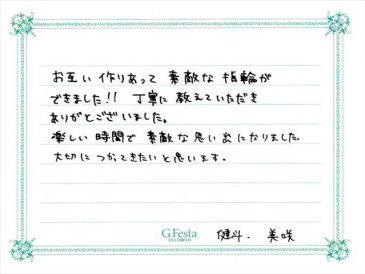 お互い作りあって 素敵な指輪が
できました!! 丁寧に教えていただき
ありがとございました。
楽しい時間で素敵な思い出になりました
大切につかてきたいと思います。
G.Festa
DIAMOND
健斗. 美咲